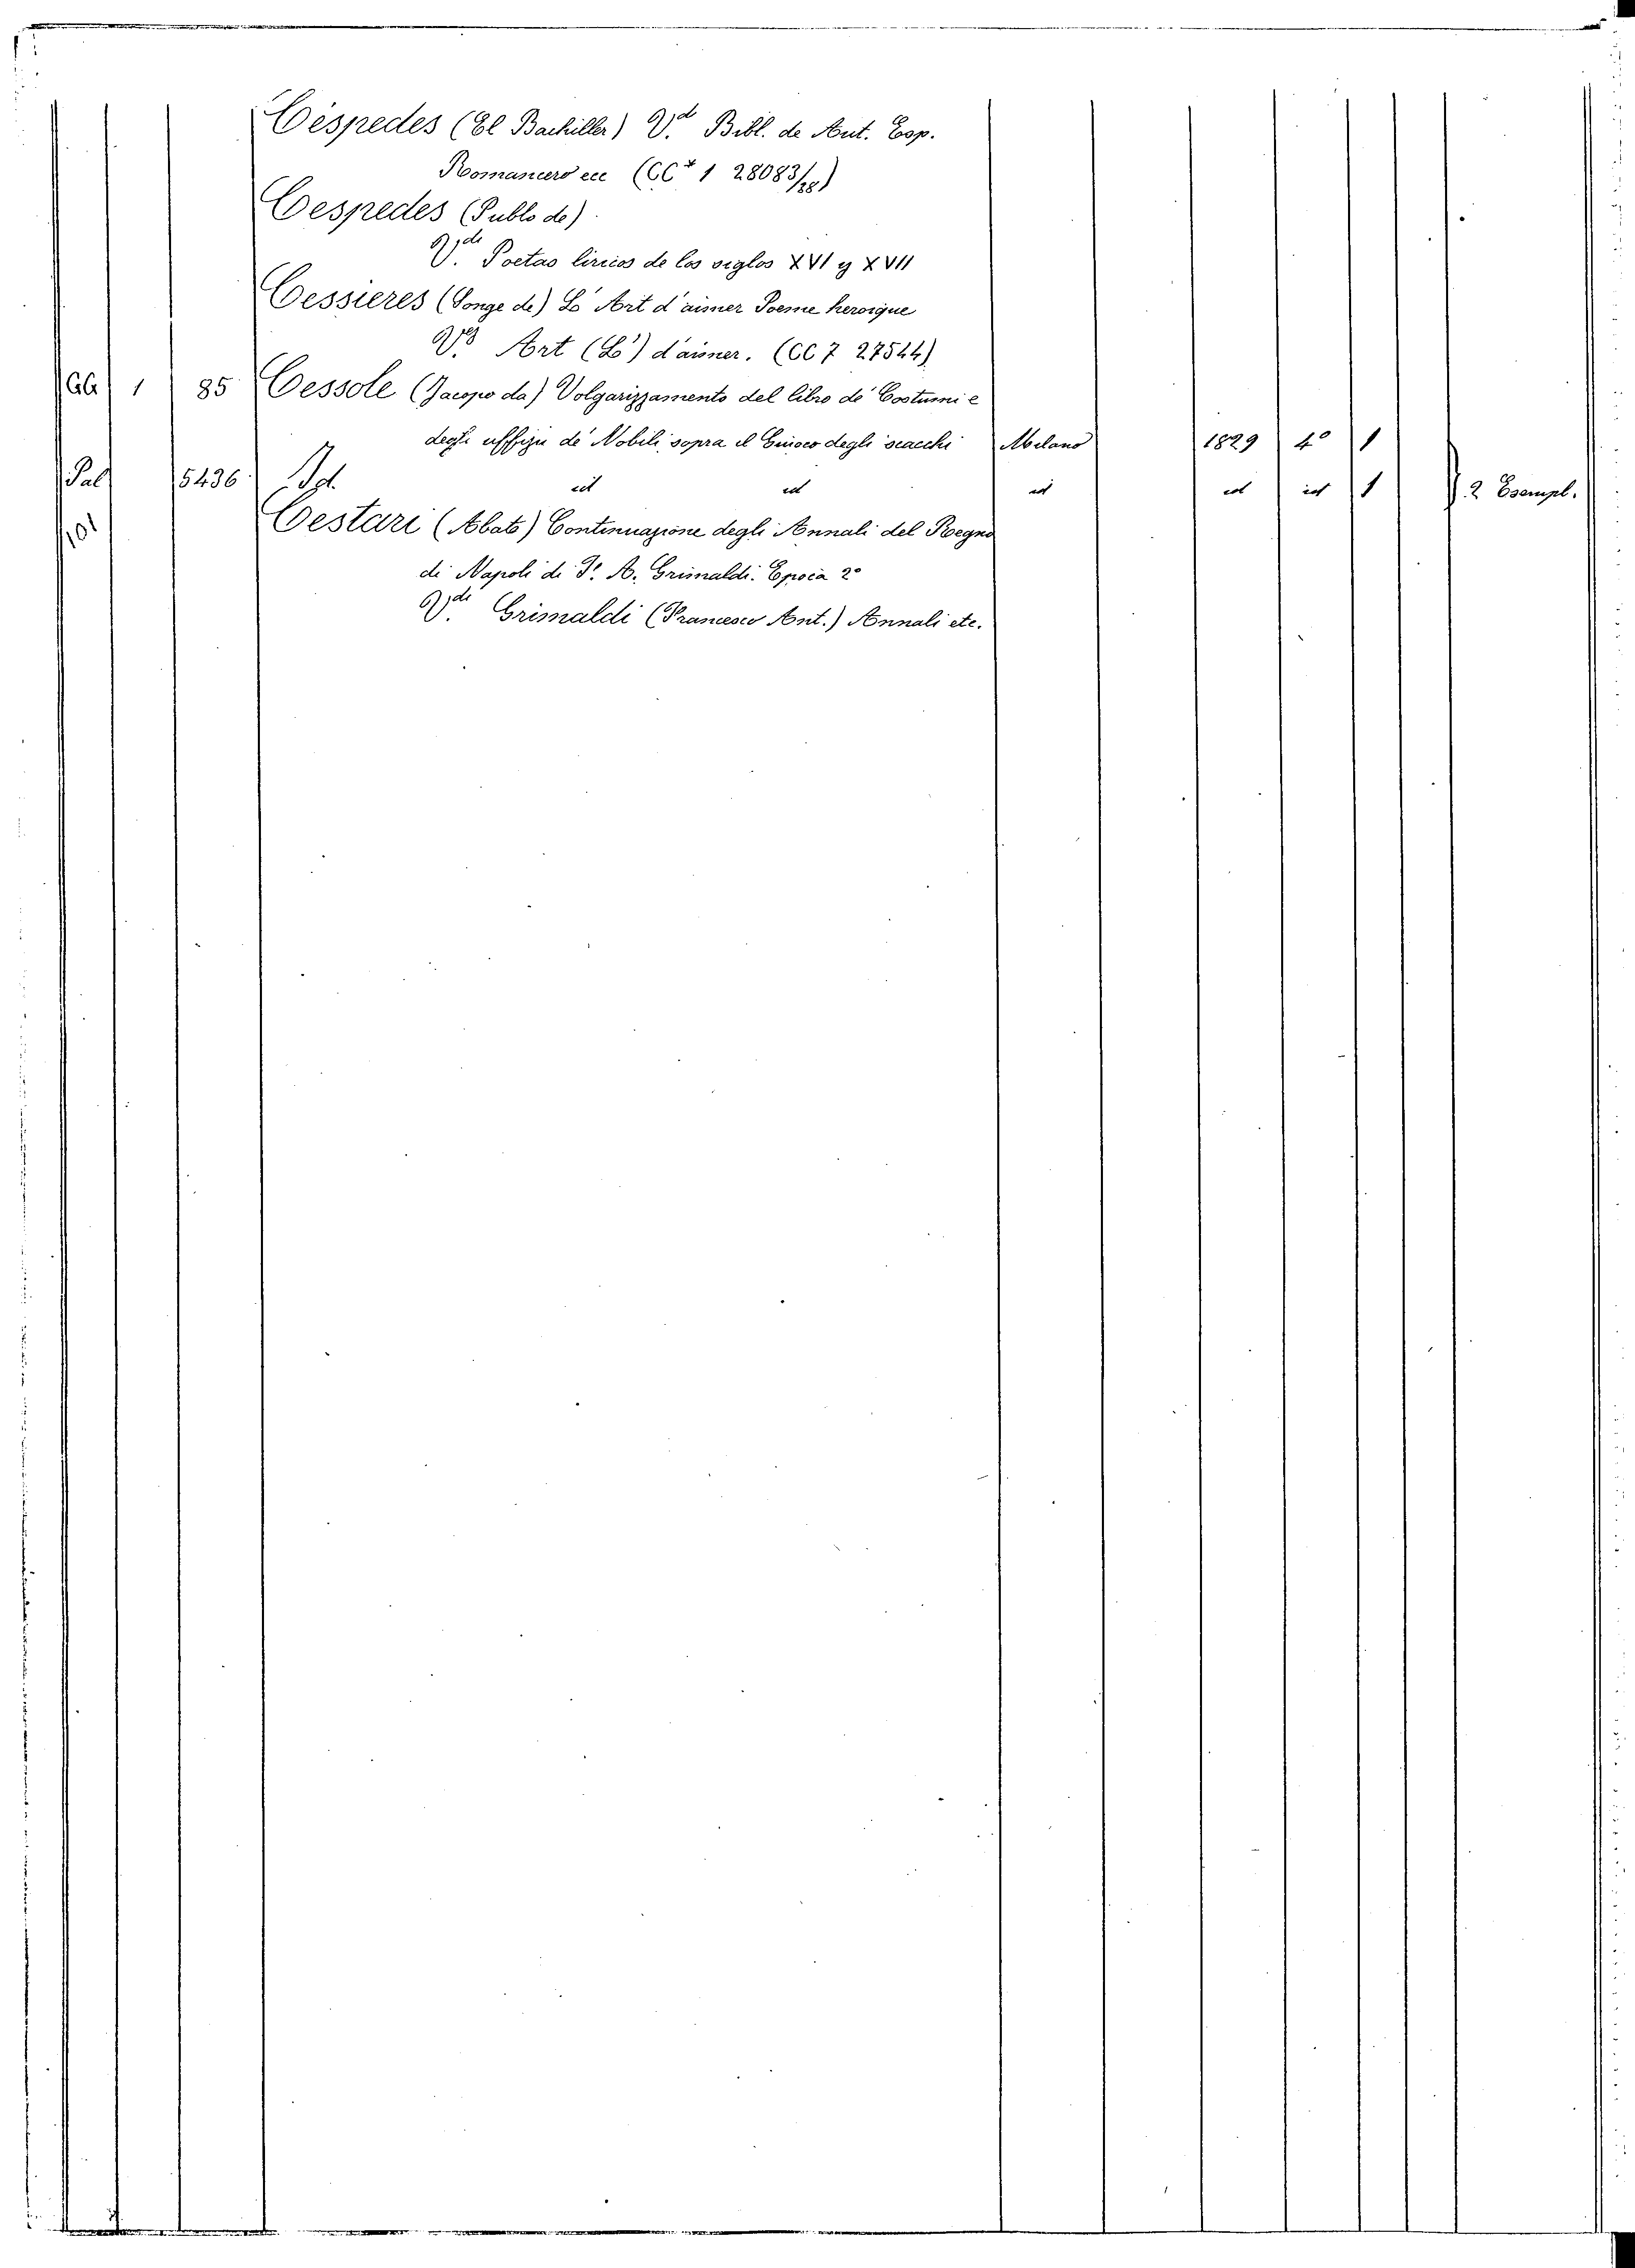 Céspedes (El Bachiller) V.d Bibl. de Aut. Esp.
Romancero ecc (CC+ 1 28083/28)
Cespedes (Pablo de)
V.de Poetas liricos de los siglos XVI y XVII
Cessieres (Gouge de) L'Art d'aimer Poeme heroique
V. Art (L') d'aimer. (CC 7 27544)
1 85 Cessole (Jacopo da) Volgarizzamento del libro de' Costumi e
degli uffizii de' Nobili sopra il Giuoco degli scacchi Milano 1829 4° 1
Pal 5436 Id. id id id id id 1 2 Esempl.
101 Cestari (Abate) Continuazione degli Annali del Regno
di Napoli di F. A. Grimaldi. Epoca 2a
V.de Grimaldi (Francesco Ant.) Annali etc.